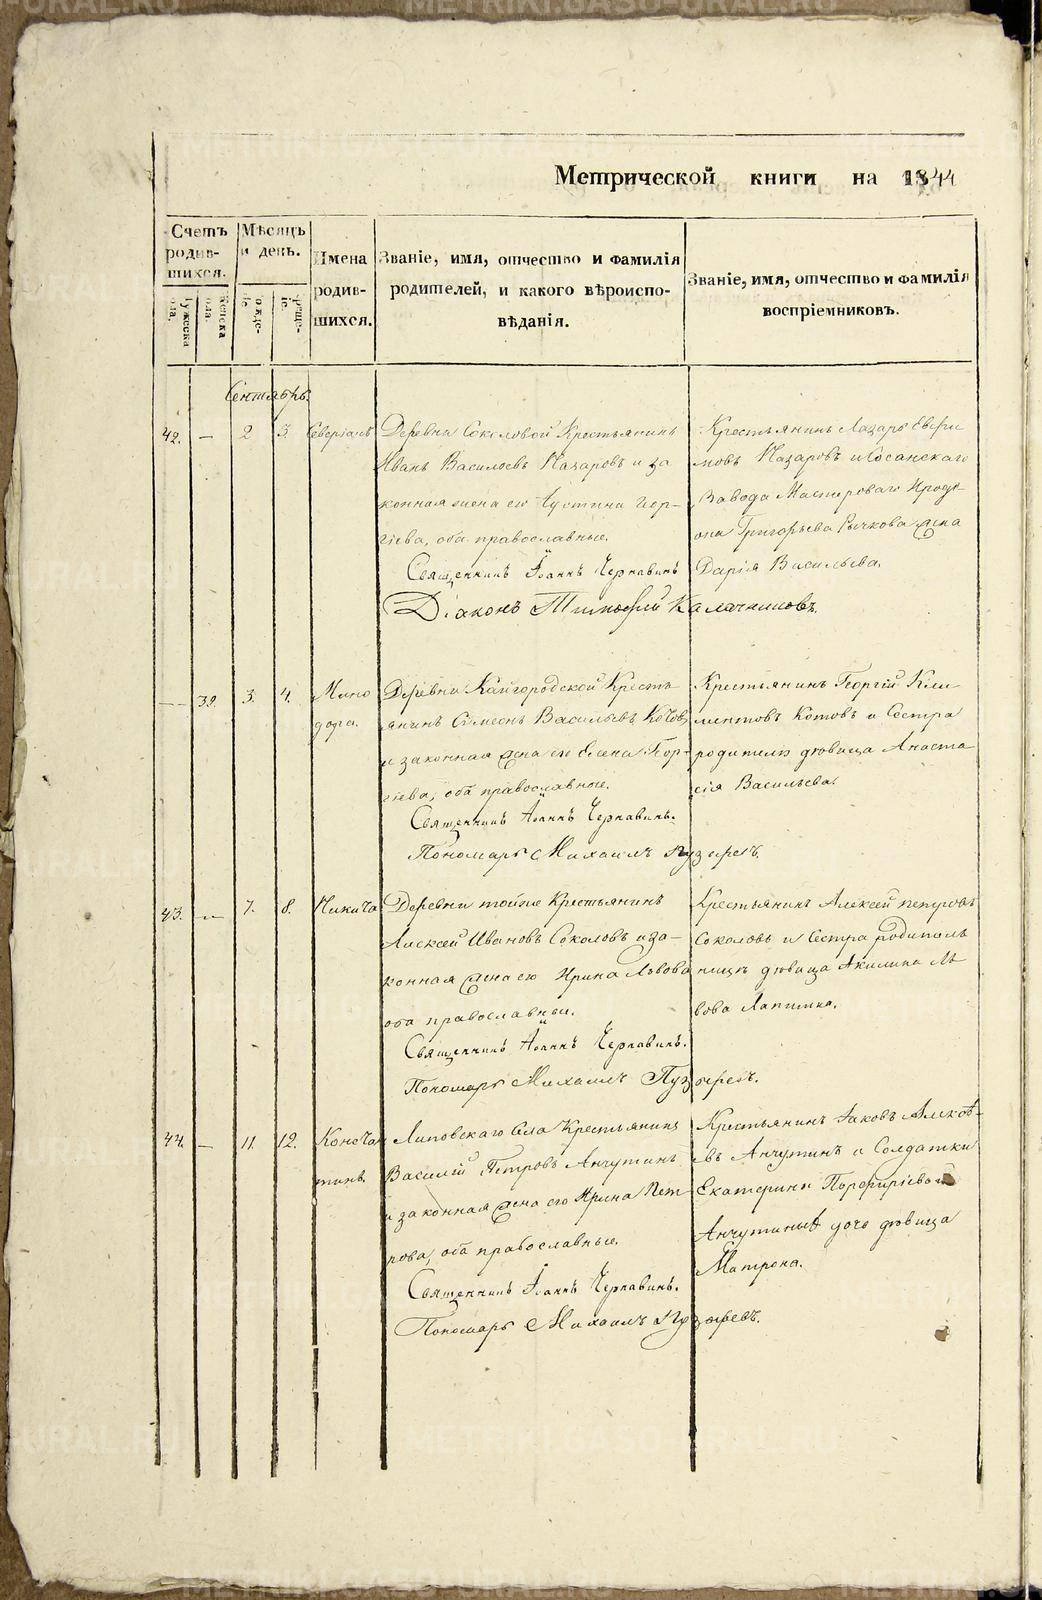 Метрической книги на 1844
Счетъ родив-шихся.
Мѣсяцъ и день.
Имена родив-шихся.
Званіе, имя, отчество и фамилія родителей, и какого вѣроиспо-вѣданія.
Званіе, имя, отчество и фамилія воспріемниковъ.
Сентябрь
42. — 2 3. Северіанъ
Деревни Соколовой Крестьянинъ
Иванъ Васильевъ Назаровъ и за
конная жена его Іустина Геор-
гіева, оба православные.
Священникъ Іоаннъ Чернавинъ
Діаконъ Тимофей Калачниковъ.
Крестьянинъ Лазарь Евфи
мовъ Назаровъ и Іосанскаго
Завода Мастероваго Проко
пія Григорьева Рычкова жена
Дарія Васильева.
— 39. 3. 4. Мино
дора.
Деревни Кайгородской Кресть
янинъ Симеонъ Васильевъ Котовъ
и законная жена его Елена Геор-
гіева, оба православные.
Священникъ Іоаннъ Чернавинъ.
Пономарь Михаилъ Пузыревъ.
Крестьянинъ Георгій Кли
ментовъ Котовъ и Сестра
родителя дѣвица Анаста
сія Васильева.
43. — 7. 8. Никита
Деревни тойже Крестьянинъ
Алексей Ивановъ Соколовъ и за-
конная жена его Ирина Львова
оба православные.
Священникъ Іоаннъ Чернавинъ.
Пономарь Михаилъ Пузыревъ.
Крестьянинъ Алексей Петровъ
Соколовъ и Сестра родитель
ницы дѣвица Акилина Ль
вова Лапина.
44. — 11 12. Констан
тинъ.
Липовскаго Села Крестьянинъ
Василій Петровъ Анчутинъ
и законная жена его Ирина Пет
рова, оба православные.
Священникъ Іоаннъ Чернавинъ.
Пономарь Михаилъ Пузыревъ.
Крестьянинъ Іаковъ Алексѣ-
евъ Анчутинъ и Солдатки
Екатерины Порфиріевой
Анчутиныхъ дочь дѣвица
Матрона.